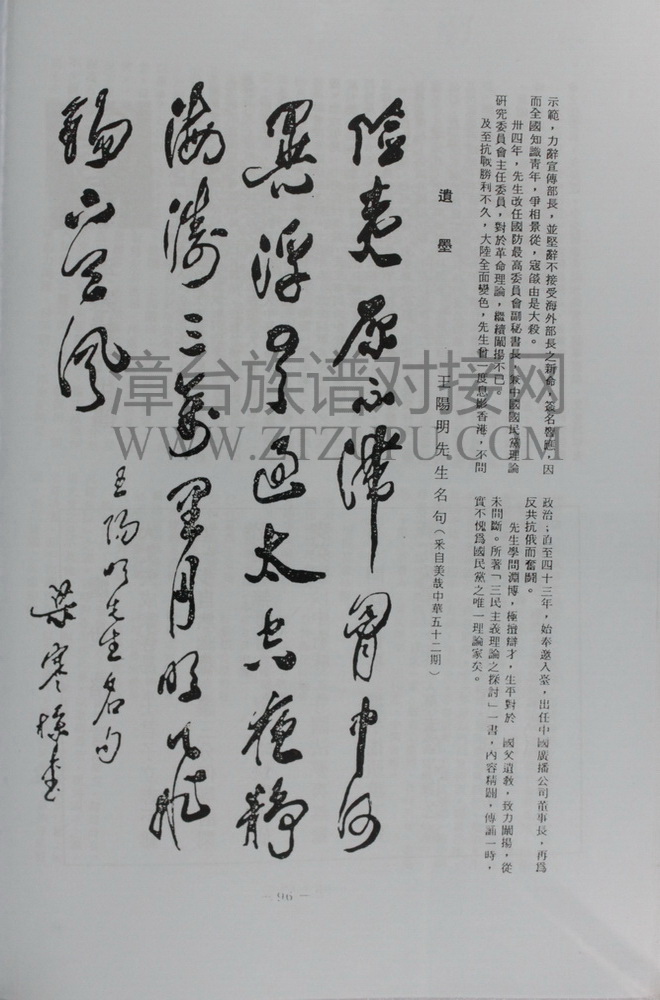 示範，力辭宣傳部長，並堅辭不接受海外部長之新命，簽名響應，因
而全國知識青年，爭相景從，寇燄由是大殺。
卅四年，先生改任國防最高委員會副秘書長，兼中國國民黨理論
研究委員會主任委員，對於革命理論，繼續闡揚不已。
及至抗戰勝利不久，大陸全面變色，先生曾一度息影香港，不問
政治；迨至四十三年，始奉邀入臺，出任中國廣播公司董事長，再為
反共抗俄而奮鬪。
先生學問淵博，極擅辯才，生平對於　國父遺教，致力闡揚，從
未間斷。所著「三民主義理論之探討」一書，內容精闢，傳誦一時，
實不愧為國民黨之唯一理論家矣。
遺墨
王陽明先生名句（釆自美哉中華五十二期）
险夷原不滯胸中何
異浮雲過太空夜靜
海濤三萬里月明飛
錫下天風
王陽明先生名句
梁寒操書
－ 96 －
漳台族谱对接网
WWW.ZTZUPU.COM